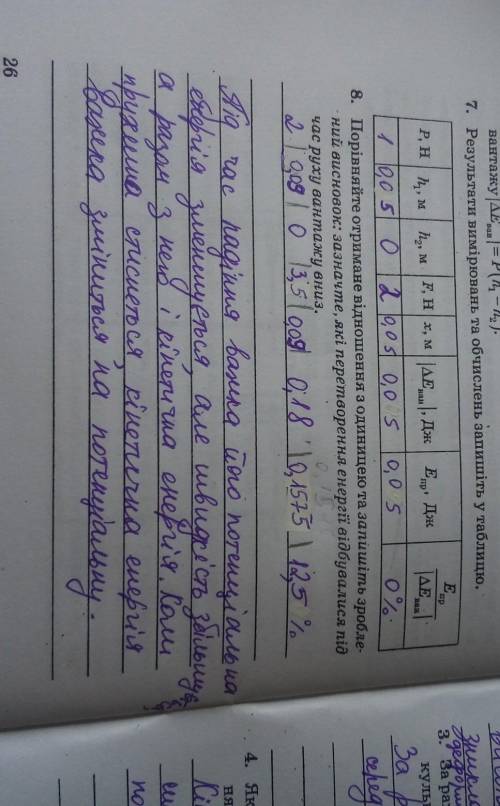 вантажу |ΔEван| = P(h₁ – h₂).
7. Результати вимірювань та обчислень запишіть у таблицю.
P, Н h₁, м h₂, м F, Н x, м |ΔEван|, Дж Eпр, Дж Eпр/|ΔEван|
1 0,05 0 2 0,05 0,005 0,005 0%
8. Порівняйте отримане відношення з одиницею та запишіть зробле-
ний висновок: зазначте, які перетворення енергії відбувалися під
час руху вантажу вниз.
2 0,09 0 3,5 0,09 0,18 0,1575 12,5 %
Під час падіння важка його потенціальна
енергія зменшується, але швидкість збільшує
а разом з нею і кінетична енергія. Коли
пружина стиснеться, кінетична енергія
важка зміниться на потенціальну.
26
3. За
куль
За
серед
4. Як
ня
Кі